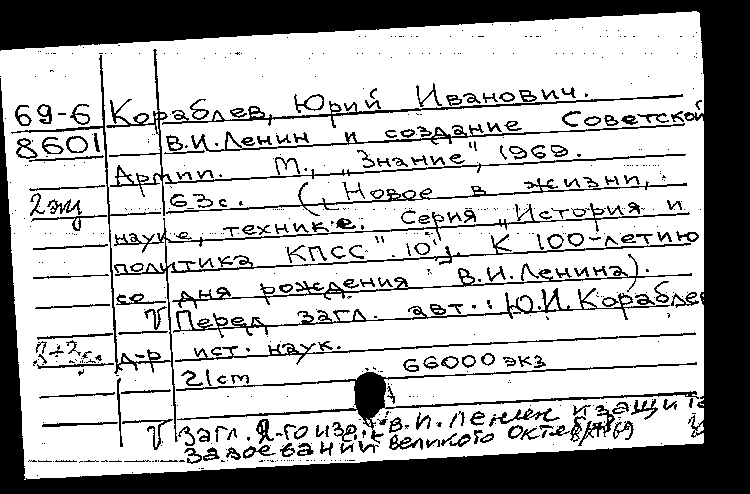 69-6 Кораблев, Юрий Иванович.
8601 В.И.Ленин и создание Советской
Армии. М., "Знание", 1969.
2 экз 63с. (Новое в жизни,
науке, технике. Серия "История и
политика КПСС". 10". К 100-летию
со дня рождения В.И.Ленина).
Перед загл. авт.: Ю.И.Кораблев
д-р ист. наук.
21см 66000 экз
Загл. 2-го изд.: В.И.Ленин и защита
завоеваний Великого Октября